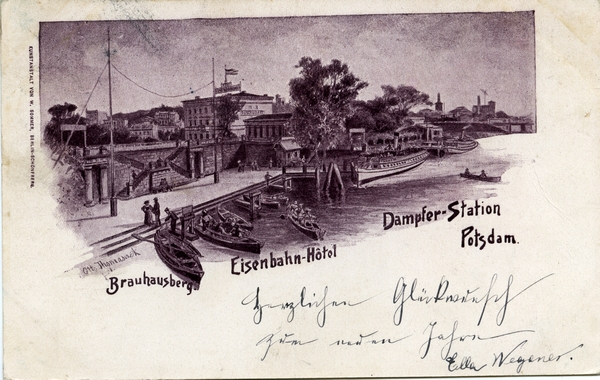 KUNSTANSTALT VON W. SOMMER, BERLIN-SCHÖNEBERG.
Brauhausberg
Eisenbahn-Hôtel
Dampfer-Station
Potsdam.
Herzlichen Glückwunsch
zum neuen Jahre
Ella Wegener.